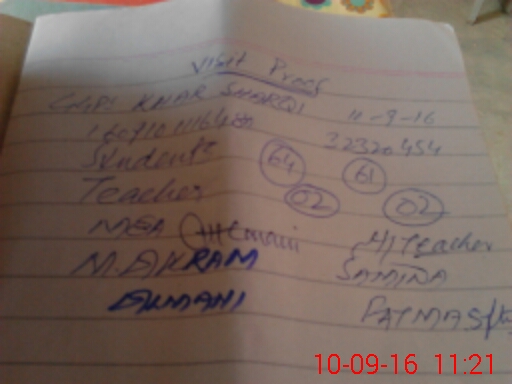 Visit Proof
GMPS KHAR SHARQI 11-9-16
32320454
Students 64 61
Teacher 02 02
MEA
M. AKRAM H/Teacher
ALMANI SAMINA
FATMA
10-09-16 11:21